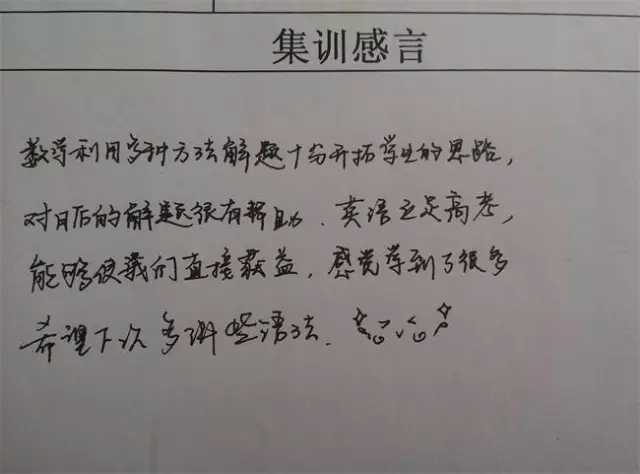 集训感言
数学利用多种方法解题十分开拓学生的思路，
对日后的解题很有帮助．英语立足高考，
能够使我们直接获益，感觉学到了很多
希望下次多讲些语法．